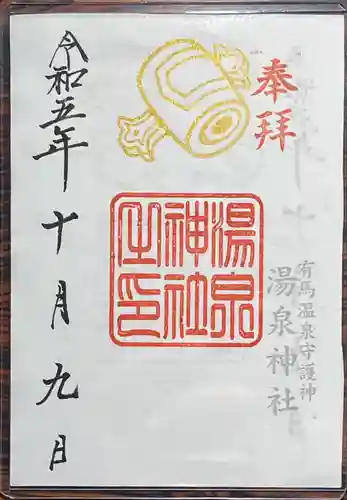 奉拝
有馬温泉守護神
湯泉神社
湯泉
神社
之印
令和五年十月九日